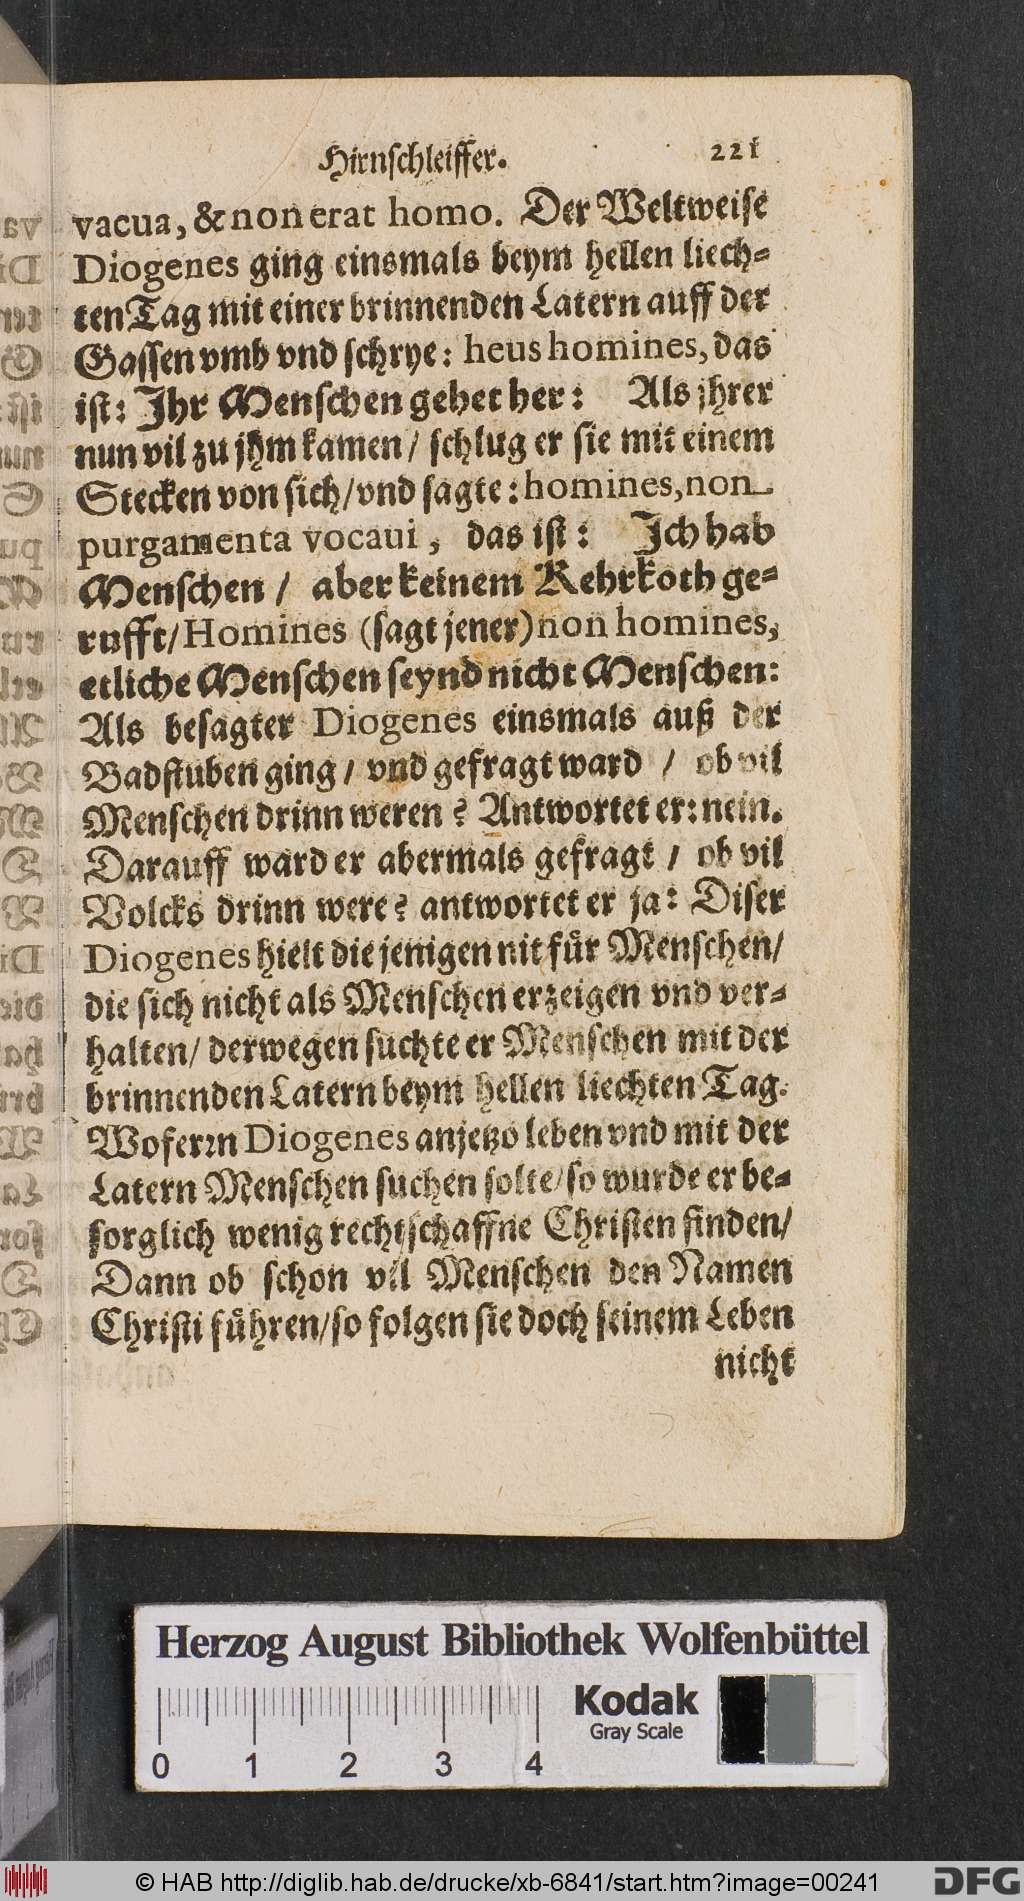 Hirnschleiffer. 221
vacua, & non erat homo. Der Weltweise
Diogenes ging einsmals beym hellen liech-
ten Tag mit einer brinnenden Latern auff der
Gassen vmb vnd schrye: heus homines, das
ist: Jhr Menschen gehet her: Als jhrer
nun vil zu jhm kamen / schlug er sie mit einem
Stecken von sich / vnd sagte: homines, non
purgamenta vocaui, das ist: Jch hab
Menschen / aber keinem Kehrkoth ge-
rufft / Homines (sagt jener) non homines,
etliche Menschen seynd nicht Menschen:
Als besagter Diogenes einsmals auß der
Badstuben ging / vnd gefragt ward / ob vil
Menschen drinn weren? Antwortet er: nein.
Darauff ward er abermals gefragt / ob vil
Volcks drinn were? antwortet er ja: Diser
Diogenes hielt die jenigen nit für Menschen /
die sich nicht als Menschen erzeigen vnd ver-
halten / derwegen suchte er Menschen mit der
brinnenden Latern beym hellen liechten Tag.
Wofernn Diogenes anjetzo leben vnd mit der
Latern Menschen suchen solte / so wurde er be-
sorglich wenig rechtschaffne Christen finden /
Dann ob schon vil Menschen den Namen
Christi führen / so folgen sie doch seinem Leben
nicht
Herzog August Bibliothek Wolfenbüttel
Kodak
Gray Scale
0 1 2 3 4
© HAB http://diglib.hab.de/drucke/xb-6841/start.htm?image=00241
DFG